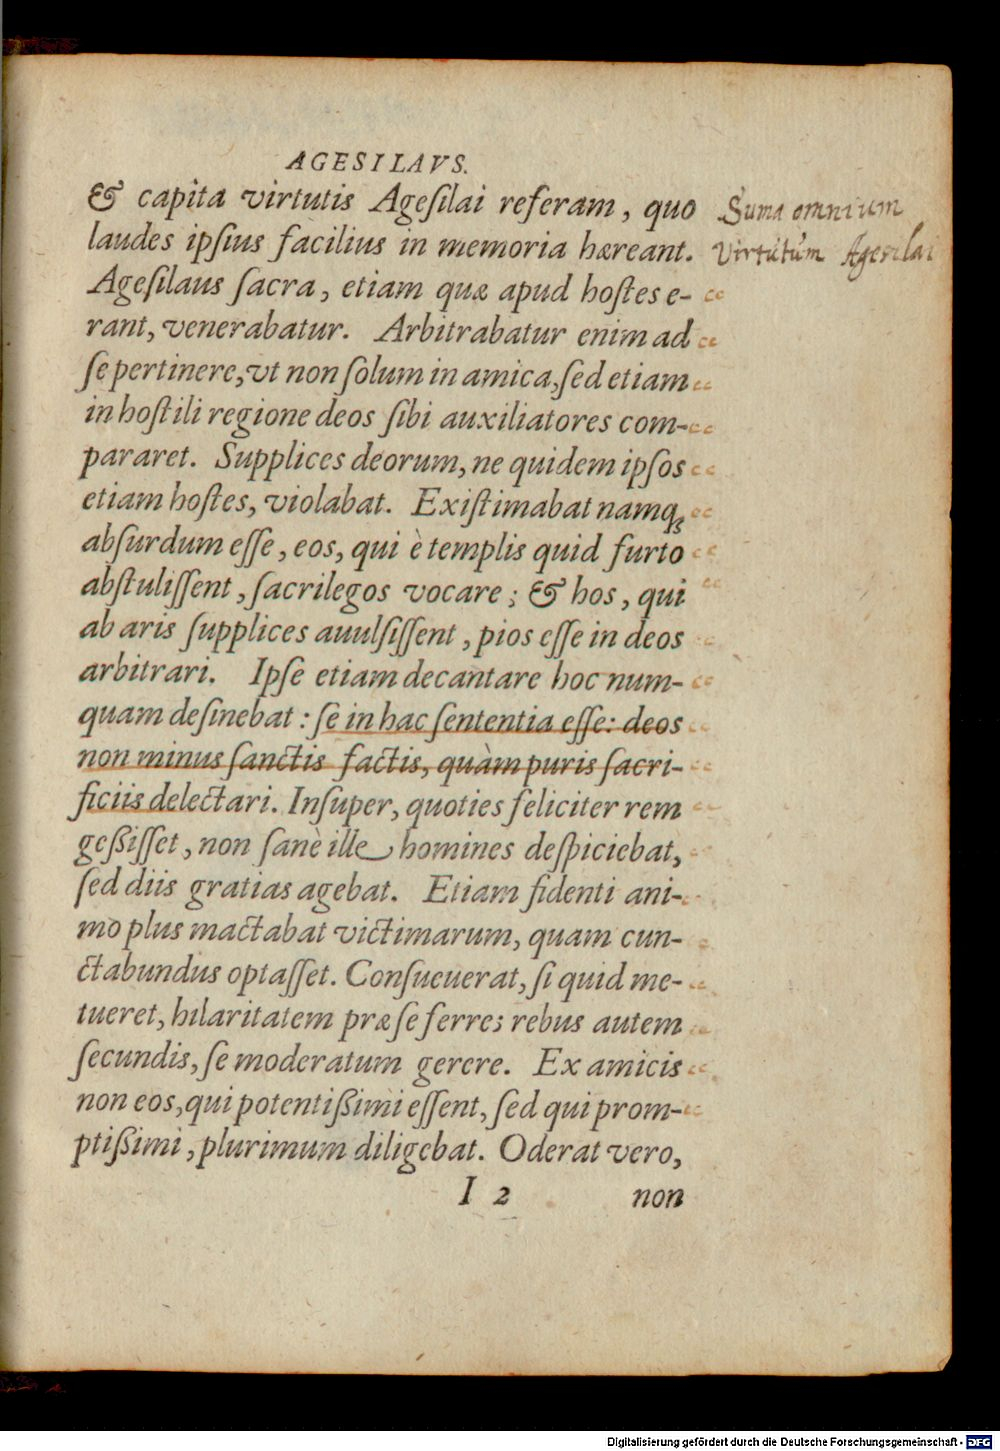 AGESILAVS.
& capita virtutis Ageſilai referam, quo
Suma omnium
laudes ipſius facilius in memoria hæreant.
virtutum Agesilai
Ageſilaus ſacra, etiam quæ apud hoſtes e-
rant, venerabatur. Arbitrabatur enim ad
ſe pertinere, vt non ſolum in amica, ſed etiam
in hoſtili regione deos ſibi auxiliatores com-
pararet. Supplices deorum, ne quidem ipſos
etiam hoſtes, violabat. Exiſtimabat namqꝫ
abſurdum eſſe, eos, qui è templis quid furto
abſtuliſſent, ſacrilegos vocare; & hos, qui
ab aris ſupplices auulſiſſent, pios eſſe in deos
arbitrari. Ipſe etiam decantare hoc num-
quam deſinebat: ſe in hac ſententia eſſe: deos
non minus ſanctis factis, quàm puris ſacri-
ficiis delectari. Inſuper, quoties feliciter rem
geßiſſet, non ſanè ille homines deſpiciebat,
ſed diis gratias agebat. Etiam fidenti ani-
mo plus mactabat victimarum, quam cun-
ctabundus optaſſet. Conſueuerat, ſi quid me-
tueret, hilaritatem præ ſe ferre; rebus autem
ſecundis, ſe moderatum gerere. Ex amicis
non eos, qui potentißimi eſſent, ſed qui prom-
ptißimi, plurimum diligebat. Oderat vero,
I 2 non
Digitalisierung gefördert durch die Deutsche Forschungsgemeinschaft - DFG